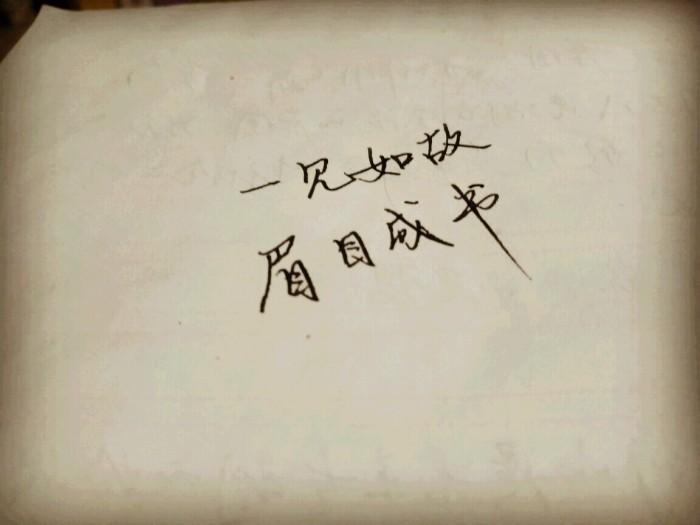 一见如故
眉目成书